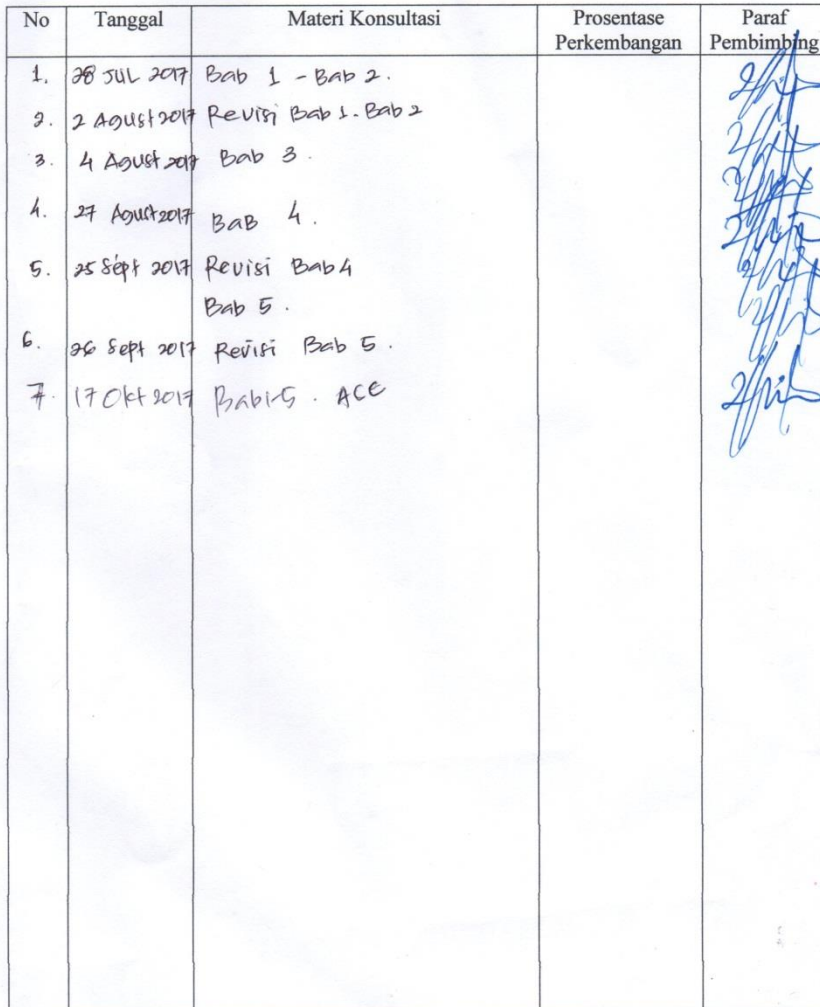 No Tanggal Materi Konsultasi Prosentase Perkembangan Paraf Pembimbing
1. 28 JUL 2017 Bab 1 - Bab 2.
2. 2 Agust 2017 Revisi Bab 1 - Bab 2
3. 4 Agust 2017 Bab 3.
4. 27 Agust 2017 BaB 4.
5. 25 Sept 2017 Revisi Bab 4
Bab 5.
6. 26 Sept 2017 Revisi Bab 5.
7. 17 Okt 2017 Bab 1-5. ACC